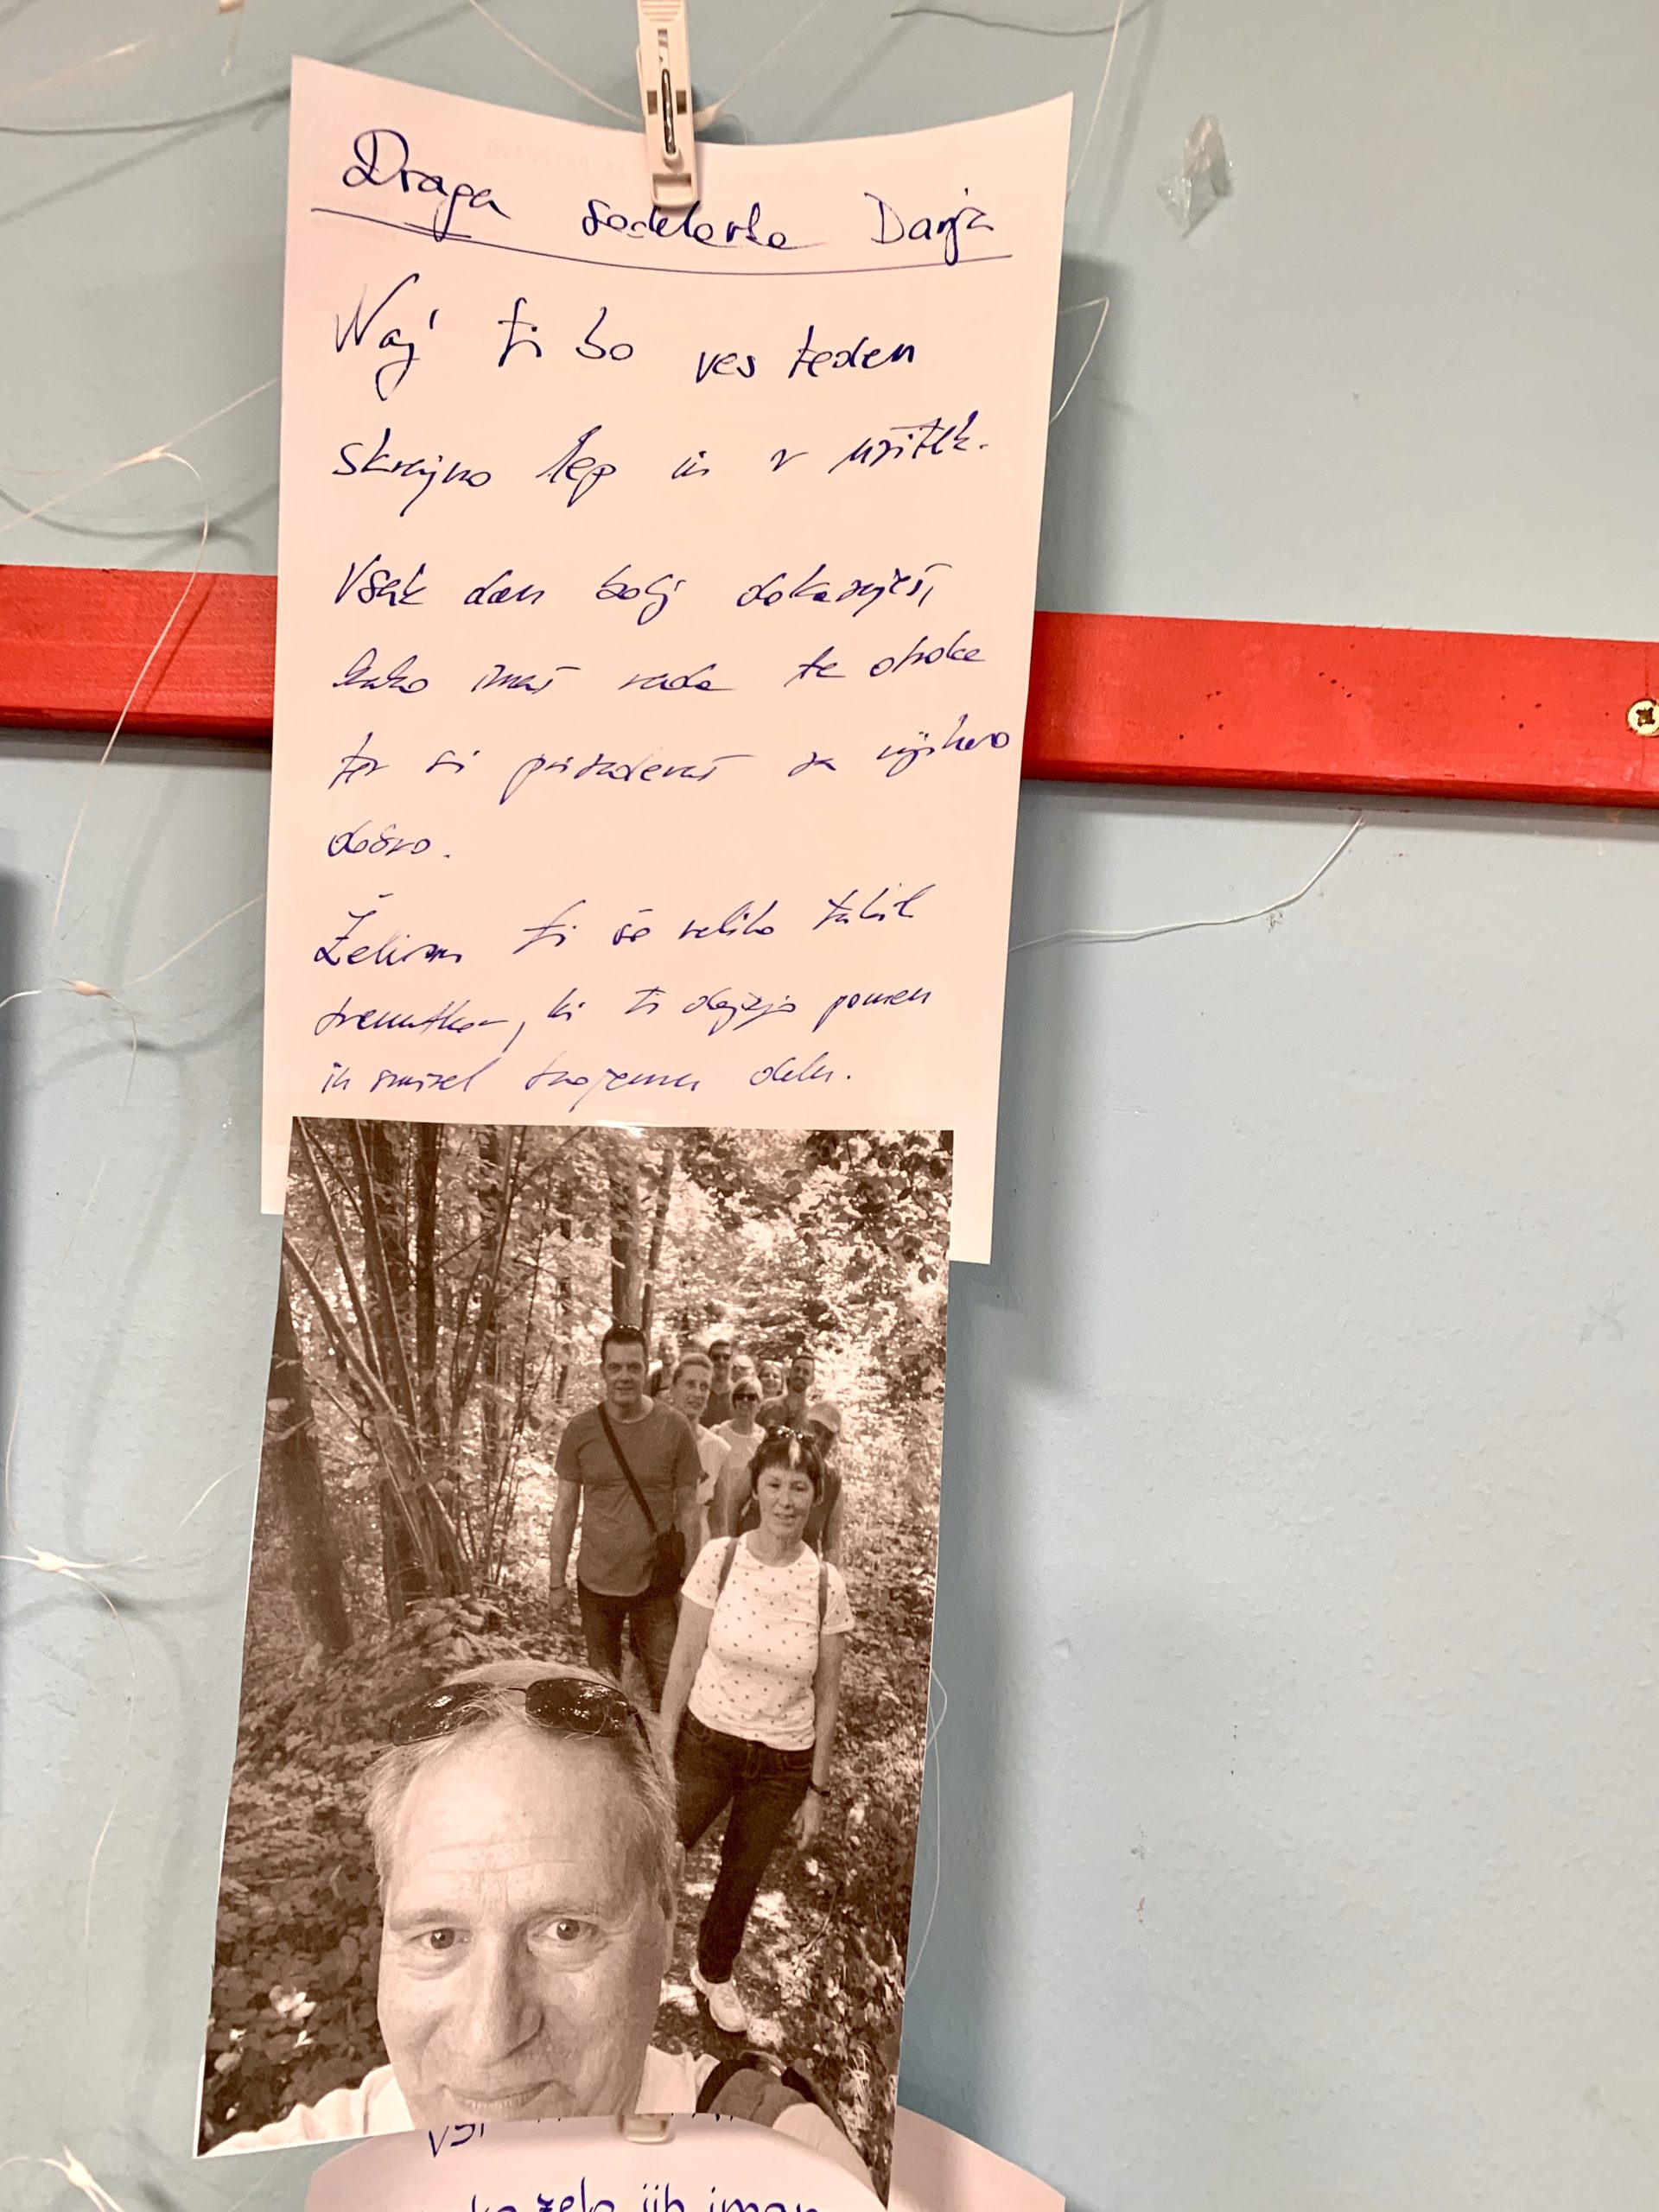 Draga sodelavka Darja
Naj ti bo ves teden
skrajno lep in v užitek.
Vsak dan bolj dokazuješ,
kako imaš rada te otroke
ter si prizadevaš za njihovo
dobro.
Želim ti še veliko takih
trenutkov, ki ti dajejo pomen
in smisel tvojemu delu.
zelo jih imam